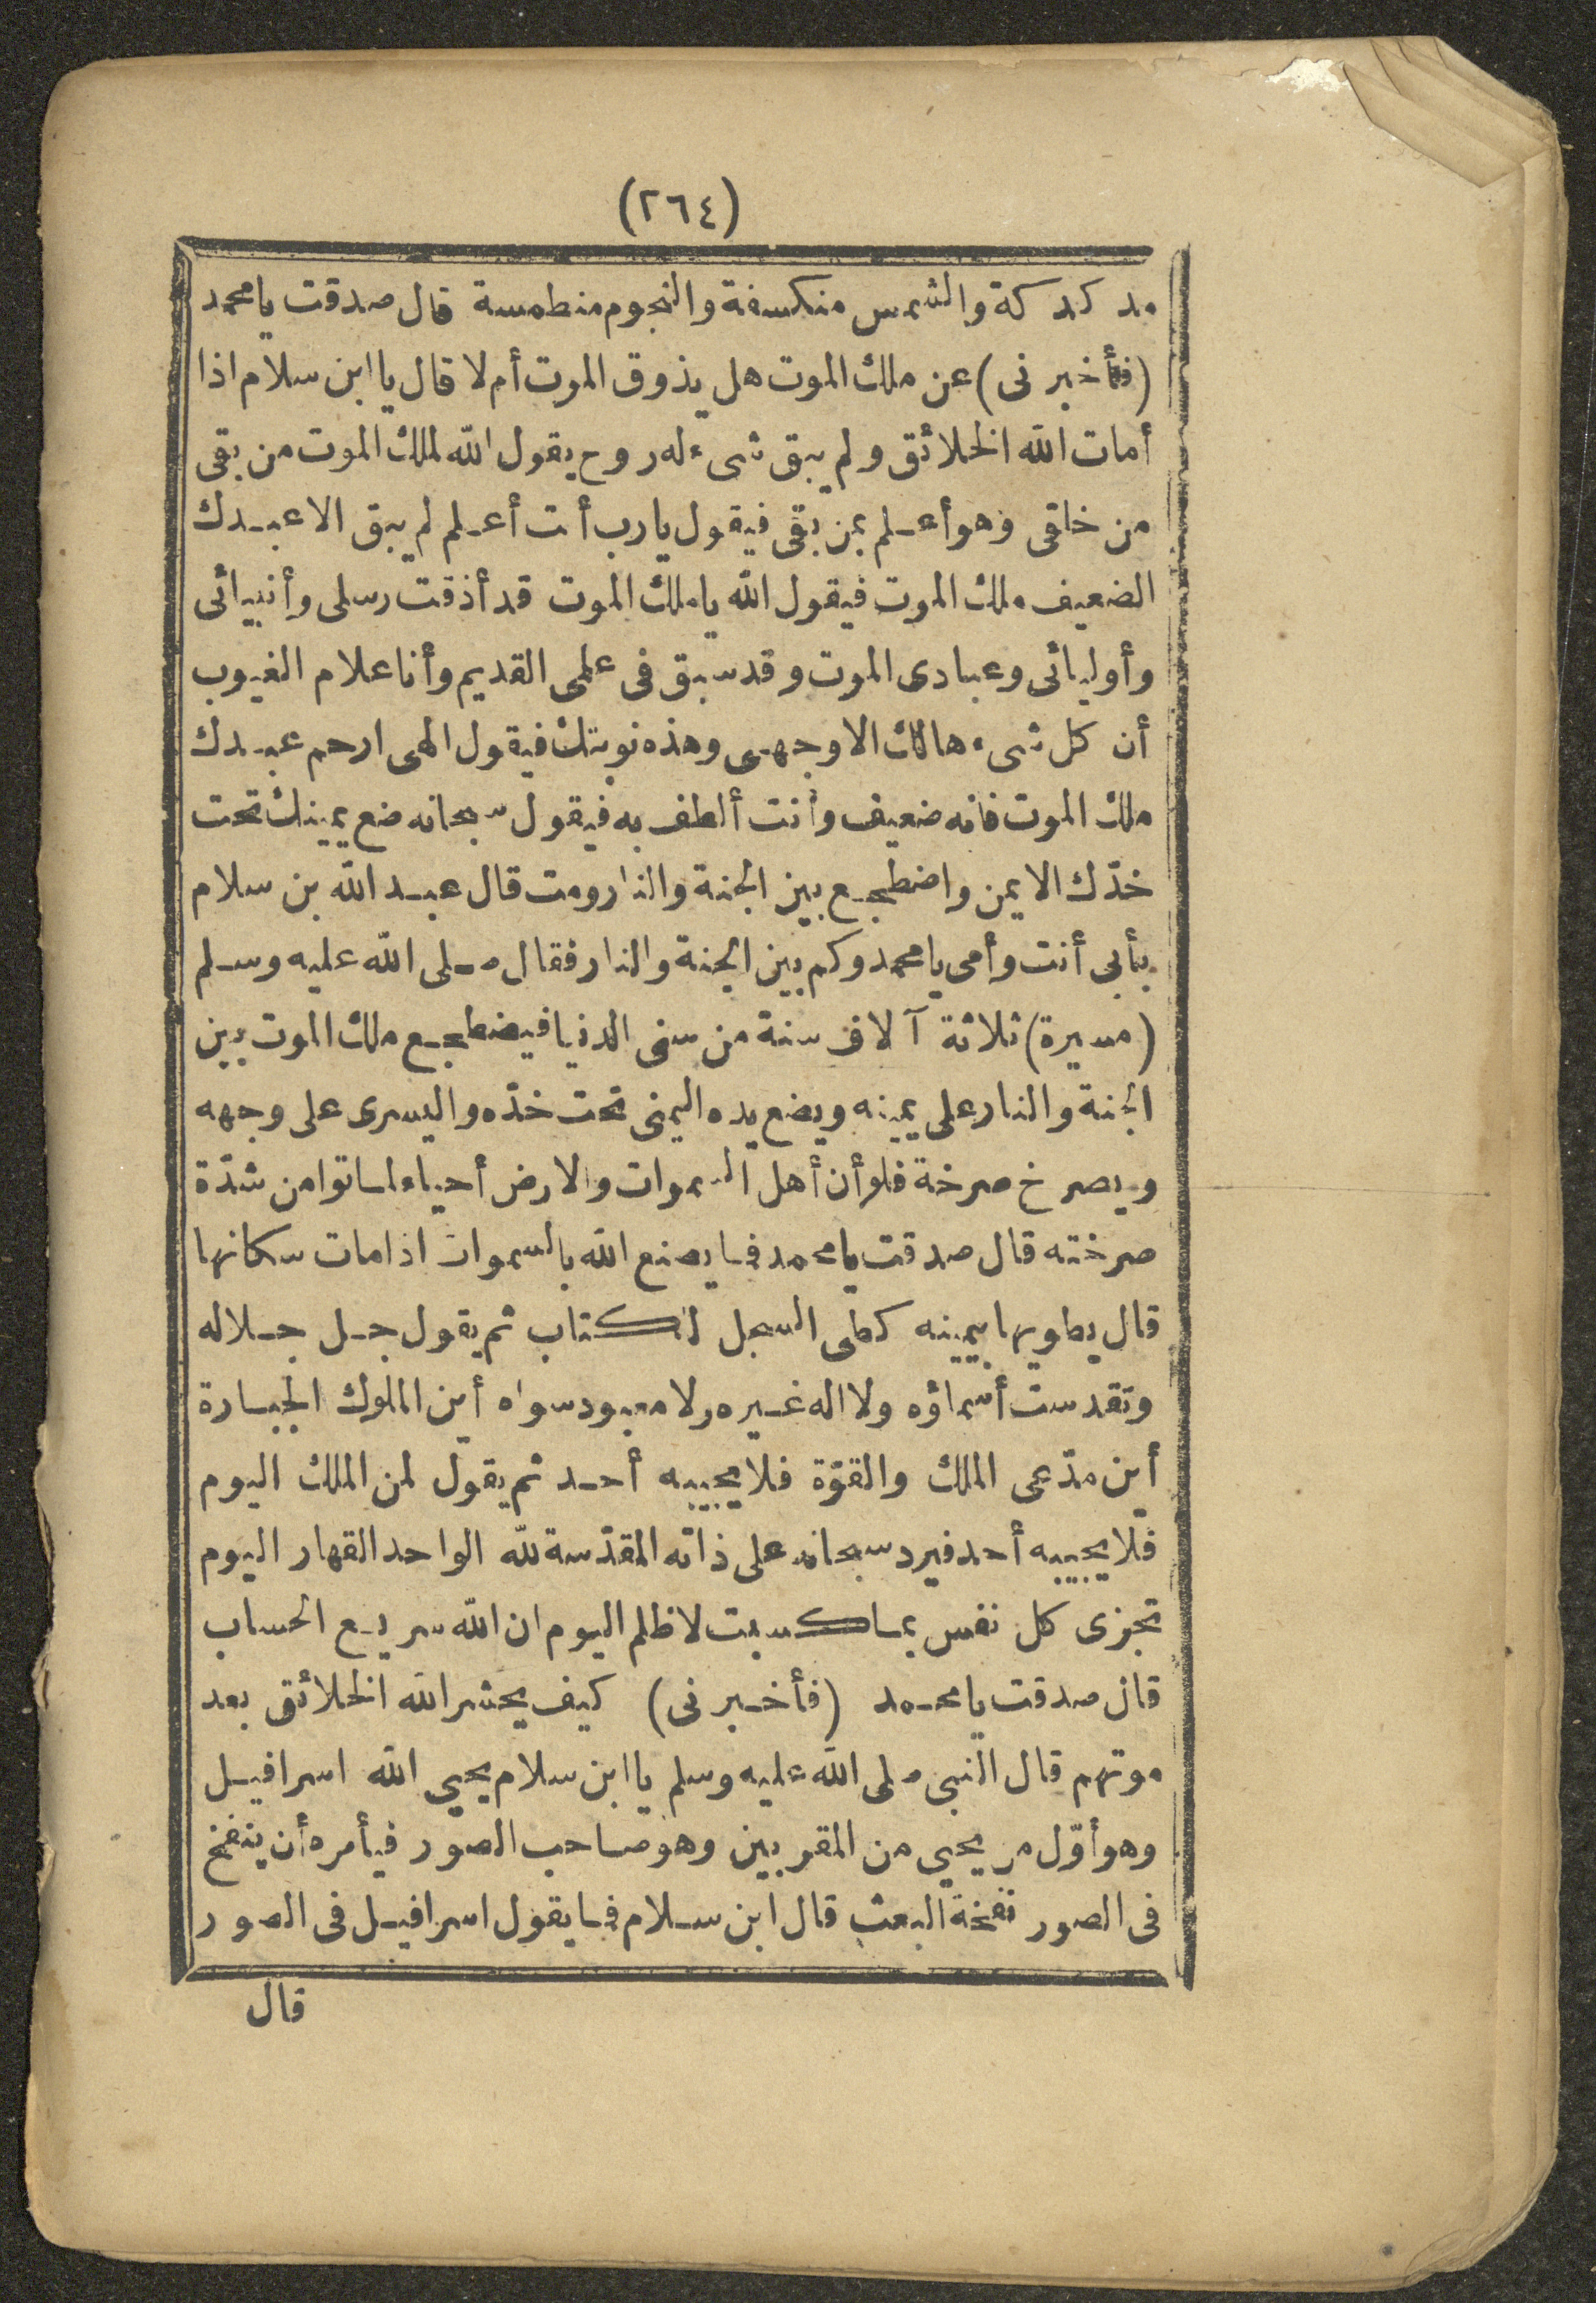 (٢٦٤)
مدكدكة والشمس منكسفة والنجوم منطمسة قال صدقت يا محمد
(فأخبرنى) عن ملك الموت هل يذوق الموت أم لا قال يا ابن سلام اذا
أمات الله الخلائق ولم يبق شىء له روح يقول الله لملك الموت من بقى
من خلقى وهو أعلم بمن بقى فيقول يا رب أنت أعلم لم يبق الا عبدك
الضعيف ملك الموت فيقول الله يا ملك الموت قد أذقت رسلى وأنبيائى
وأوليائى وعبادى الموت وقد سبق فى علمى القديم وأنا علام الغيوب
أن كل شىء هالك الا وجهى وهذه نوبتك فيقول الهى ارحم عبدك
ملك الموت فانه ضعيف وأنت ألطف به فيقول سبحانه ضع يمينك تحت
خدّك الايمن واضطجع بين الجنة والنار ومت قال عبد الله بن سلام
بأبى أنت وأمى يا محمد وكم بين الجنة والنار فقال صلى الله عليه وسلم
(مسيرة) ثلاثة آلاف سنة من سنى الدنيا فيضطجع ملك الموت بين
الجنة والنار على يمينه ويضع يده اليمنى تحت خدّه واليسرى على وجهه
ويصرخ صرخة فلو أن أهل السموات والارض أحياء لماتوا من شدّة
صرخته قال صدقت يا محمد فما يصنع الله بالسموات اذا مات سكانها
قال يطويها بيمينه كطى السجل للكتاب ثم يقول جل جلاله
وتقدست أسماؤه ولا اله غيره ولا معبود سواه أين الملوك الجبابرة
أين مدّعى الملك والقوّة فلا يجيبه أحد ثم يقول لمن الملك اليوم
فلا يجيبه أحد فيرد سبحانه على ذاته المقدّسة لله الواحد القهار اليوم
تجزى كل نفس بما كسبت لا ظلم اليوم ان الله سريع الحساب
قال صدقت يا محمد (فأخبرنى) كيف يحشر الله الخلائق بعد
موتهم قال النبى صلى الله عليه وسلم يا ابن سلام يحيى الله اسرافيل
وهو أوّل من يحيى من المقربين وهو صاحب الصور فيأمره أن ينفخ
فى الصور نفخة البعث قال ابن سلام فما يقول اسرافيل فى الصور
قال